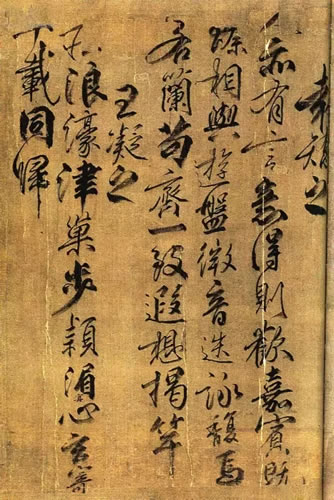 袁之
人亦有言意得則歡嘉賓既
臻相與遊盤微音迭詠馥焉
若蘭苟齊一致遐想揭竿
王凝之
浪濠津巢步潁湄心玄寄
千載同歸